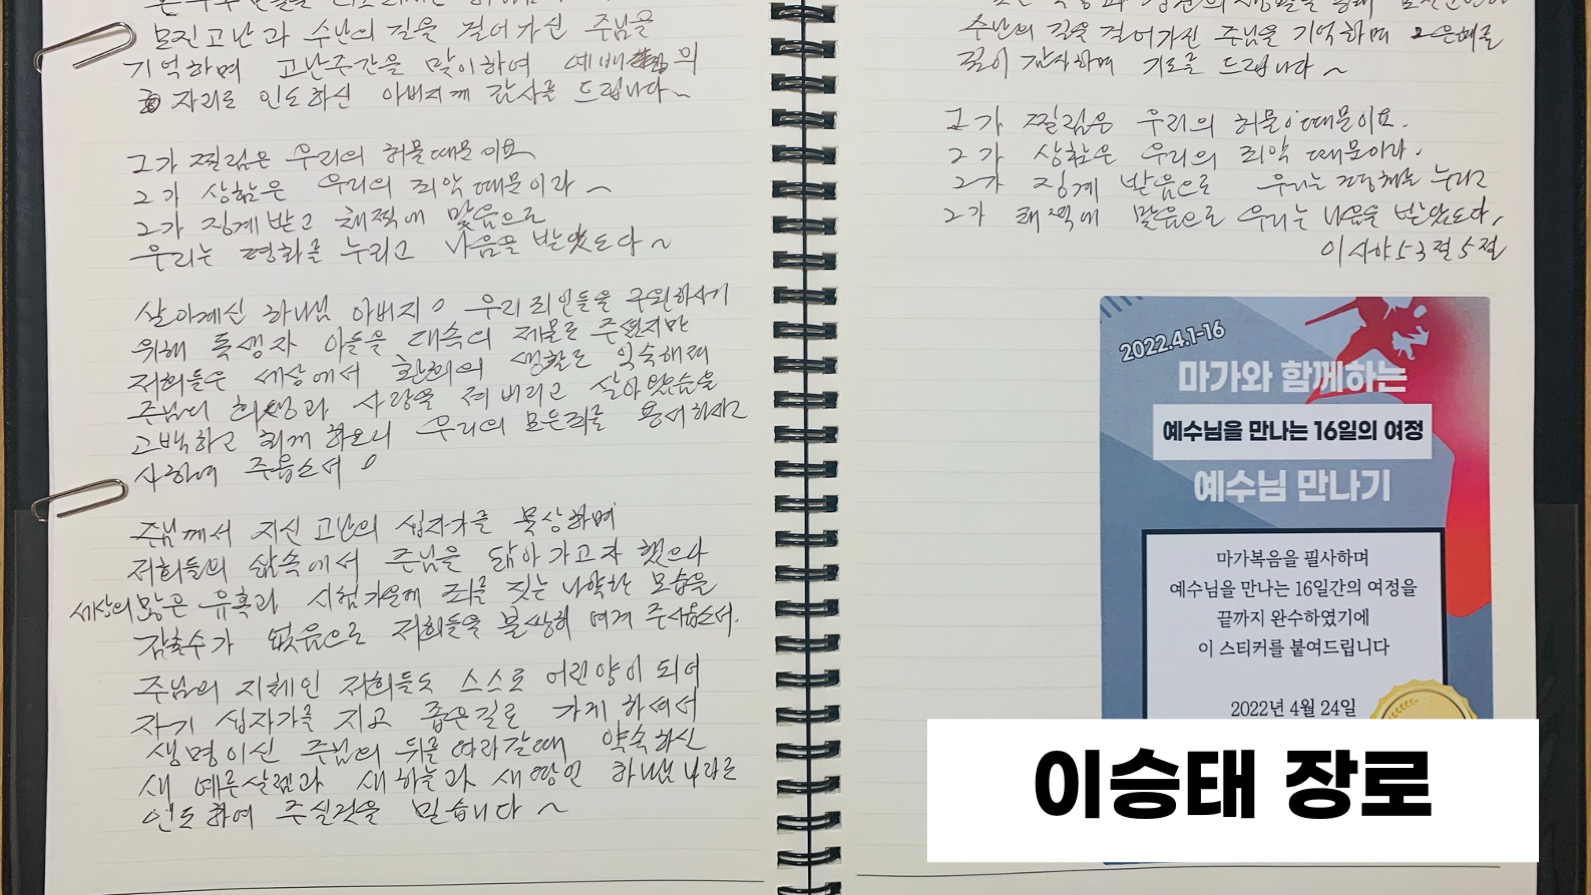 모진 고난과 수난의 길을 걸어가신 주님을
기억하며 고난주간을 맞이하여 예배의
자리로 인도하신 아버지께 감사를 드립니다~
그가 찔림은 우리의 허물 때문이요
그가 상함은 우리의 죄악 때문이라~
그가 징계받고 채찍에 맞음으로
우리는 평화를 누리고 나음을 받았도다~
살아계신 하나님 아버지! 우리 죄인들을 구원하시기
위해 독생자 아들을 대속의 제물로 주셨지만
저희들은 세상에서 환희의 생활로 익숙해져
주님의 희생과 사랑을 져버리고 살아왔음을
고백하고 회개하오니 우리의 모든죄를 용서하시고
사하여 주옵소서!
주님께서 지신 고난의 십자가를 묵상하며
저희들의 삶속에서 주님을 닮아가고자 했으나
세상의 많은 유혹과 시험가운데 죄를 짓는 나약한 모습을
감출수가 없음으로 저희들을 불쌍히 여겨 주시옵소서.
주님의 지체인 저희들도 스스로 어린양이 되어
자기 십자가를 지고 좁은길로 가게 하셔서
생명이신 주님의 뒤를 따라갈때 약속하신
새 예루살렘과 새하늘과 새땅인 하나님 나라로
인도하여 주실것을 믿습니다~
수난의 길을 걸어가신 주님을 기억하며 그 은혜를
깊이 감사하며 기도를 드립니다~
그가 찔림은 우리의 허물 때문이요.
그가 상함은 우리의 죄악 때문이라.
그가 징계 받음으로 우리는 평화를 누리고
그가 채찍에 맞음으로 우리는 나음을 받았도다,
이사야 53절 5절
2022.4.1-16
마가와 함께하는
예수님을 만나는 16일의 여정
예수님 만나기
마가복음을 필사하며
예수님을 만나는 16일간의 여정을
끝까지 완수하였기에
이 스티커를 붙여드립니다
2022년 4월 24일
이승태 장로